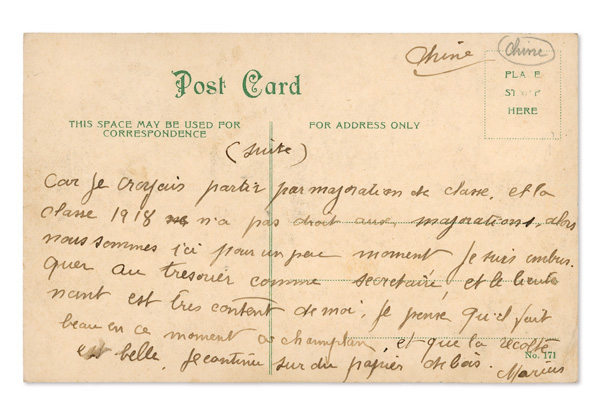 Chine
Chine
PLACE
STAMP
HERE
Post Card
THIS SPACE MAY BE USED FOR
CORRESPONDENCE
FOR ADDRESS ONLY
(suite)
Car je croyais partir par majoration de classe, et la
classe 1918 n'a pas droit aux majorations, alors
nous sommes ici pour un peu moment je suis embus-
quer au tresorier comme secretaire, et le lieute
nant est très content de moi, je pense qu'il fait
beau en ce moment a champlan, et que la recolte
est belle. je continue sur du papier de bois.
No. 171
Marius